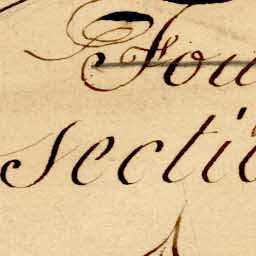 Fou
secti